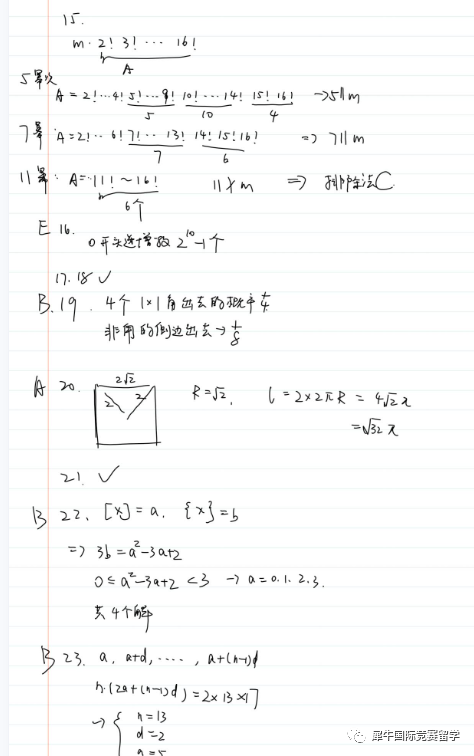 15.
m · 2! 3! ··· 16!
A
5幂次
A = 2!··4! 5!···9! 10!···14! 15! 16! → 5||m
5 10 4
7幂 A = 2!·· 6! 7!·· 13! 14! 15! 16! ⇒ 7||m
7 6
11幂: A = ·· 11! ~ 16! 11∤m ⇒ 排除法C
6个
E 16.
0开头递增数 2^10-1个
17.18 ✓
B. 19. 4个 1×1 角出去的概率 1/4
非角的侧边出去 → 1/8
A 20. 2√2 R = √2, l = 2×2πR = 4√2 π
2 2
= √32 π
21. ✓
B 22. [x] = a, {x} = b
⇒ 3b = a²-3a+2
0 ≤ a²-3a+2 < 3 → a = 0.1.2.3.
共4个解
B 23. a, a+d, ····, a+(n-1)d
n·(2a+(n-1)d) = 2×13×17
→ { n = 13
d = 2
a = 5
犀牛国际竞赛留学